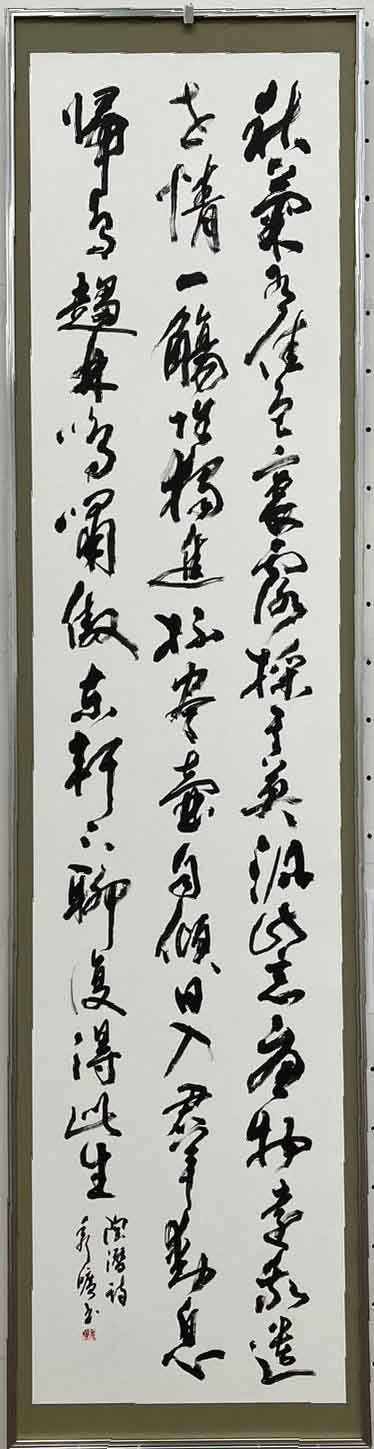 秋菊有佳色裛露採其英汎此忘憂物遠我遺
世情一觴雖獨進杯尽壷自傾日入群動息
帰鳥趨林鳴嘯傲東軒下聊復得此生
陶潜詩
秀曠書